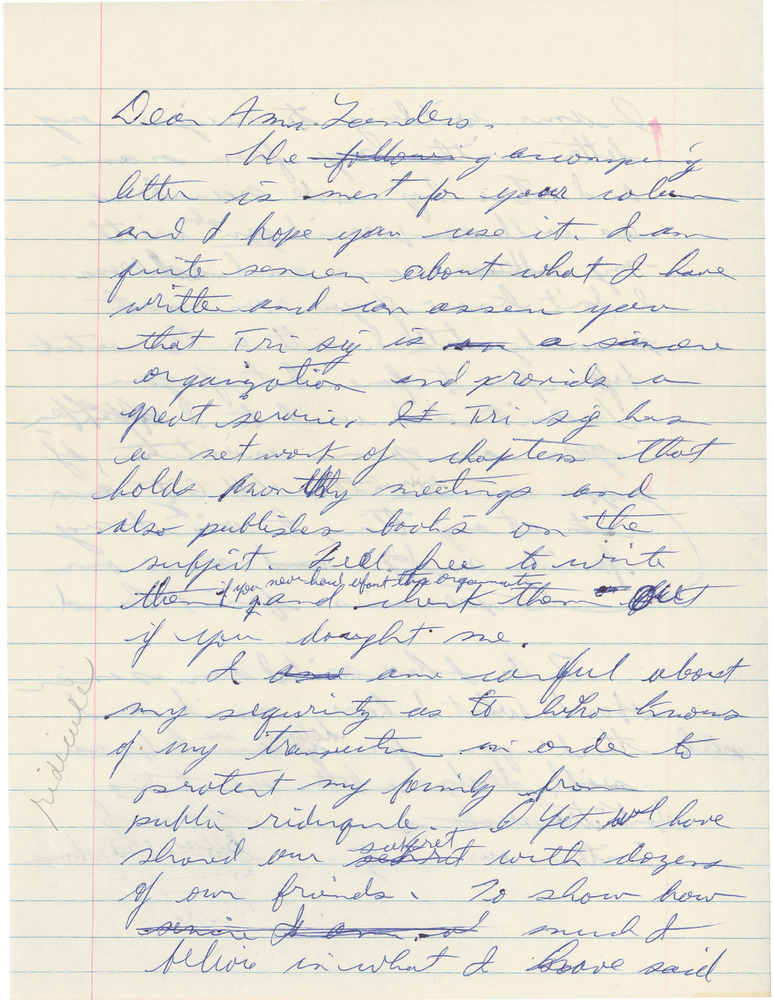 Dear Ann Landers,
The following accompying
letter is ment for your colum
and I hope you use it. I am
quite about what I have
written and can assen you
that Tri sig is an a sincere
organization and provide a
great service. It Tri sig has
a network of chapters that
holds monthly meetings and
also publishes books on the
subject. Feel free to write
if you never heard of
them and check them out
if you dought me.
I am am carful about
my sequrity as to who knows
of my in order to
protect my family from
public riduqule. Yet we have
secret
shared our with dozens
of our friends. To show how
much I
believe in what I have said
ridicule